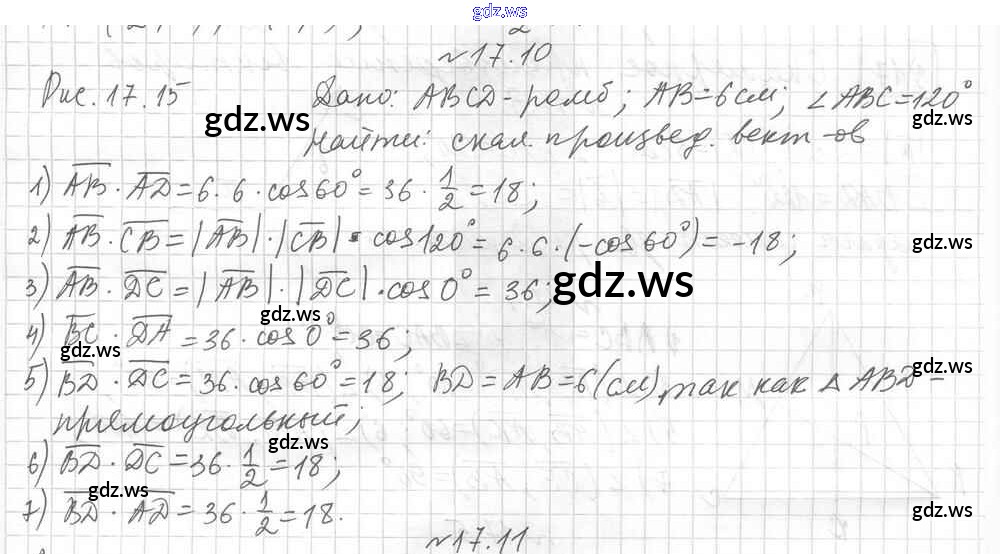 gdz.ws
№17.10
Рис. 17.15 Дано: ABCD - ромб; AB = 6 см; ∠ABC = 120°
gdz.ws gdz.ws
Найти: скал. произвед. вект-ов
1) AB · AD = 6 · 6 · cos 60° = 36 · 1/2 = 18;
2) AB · CB = |AB| · |CB| · cos 120° = 6 · 6 · (-cos 60°) = -18;
gdz.ws
3) AB · DC = |AB| · |DC| · cos 0° = 36;
gdz.ws gdz.ws
4) BC · DA = 36 · cos 0° = 36;
gdz.ws gdz.ws
5) BD · DC = 36 · cos 60° = 18; BD = AB = 6 (см), так как △ ABD -
прямоугольный;
gdz.ws
6) BD · DC = 36 · 1/2 = 18;
gdz.ws
7) BD · AD = 36 · 1/2 = 18.
gdz.ws
№17.11